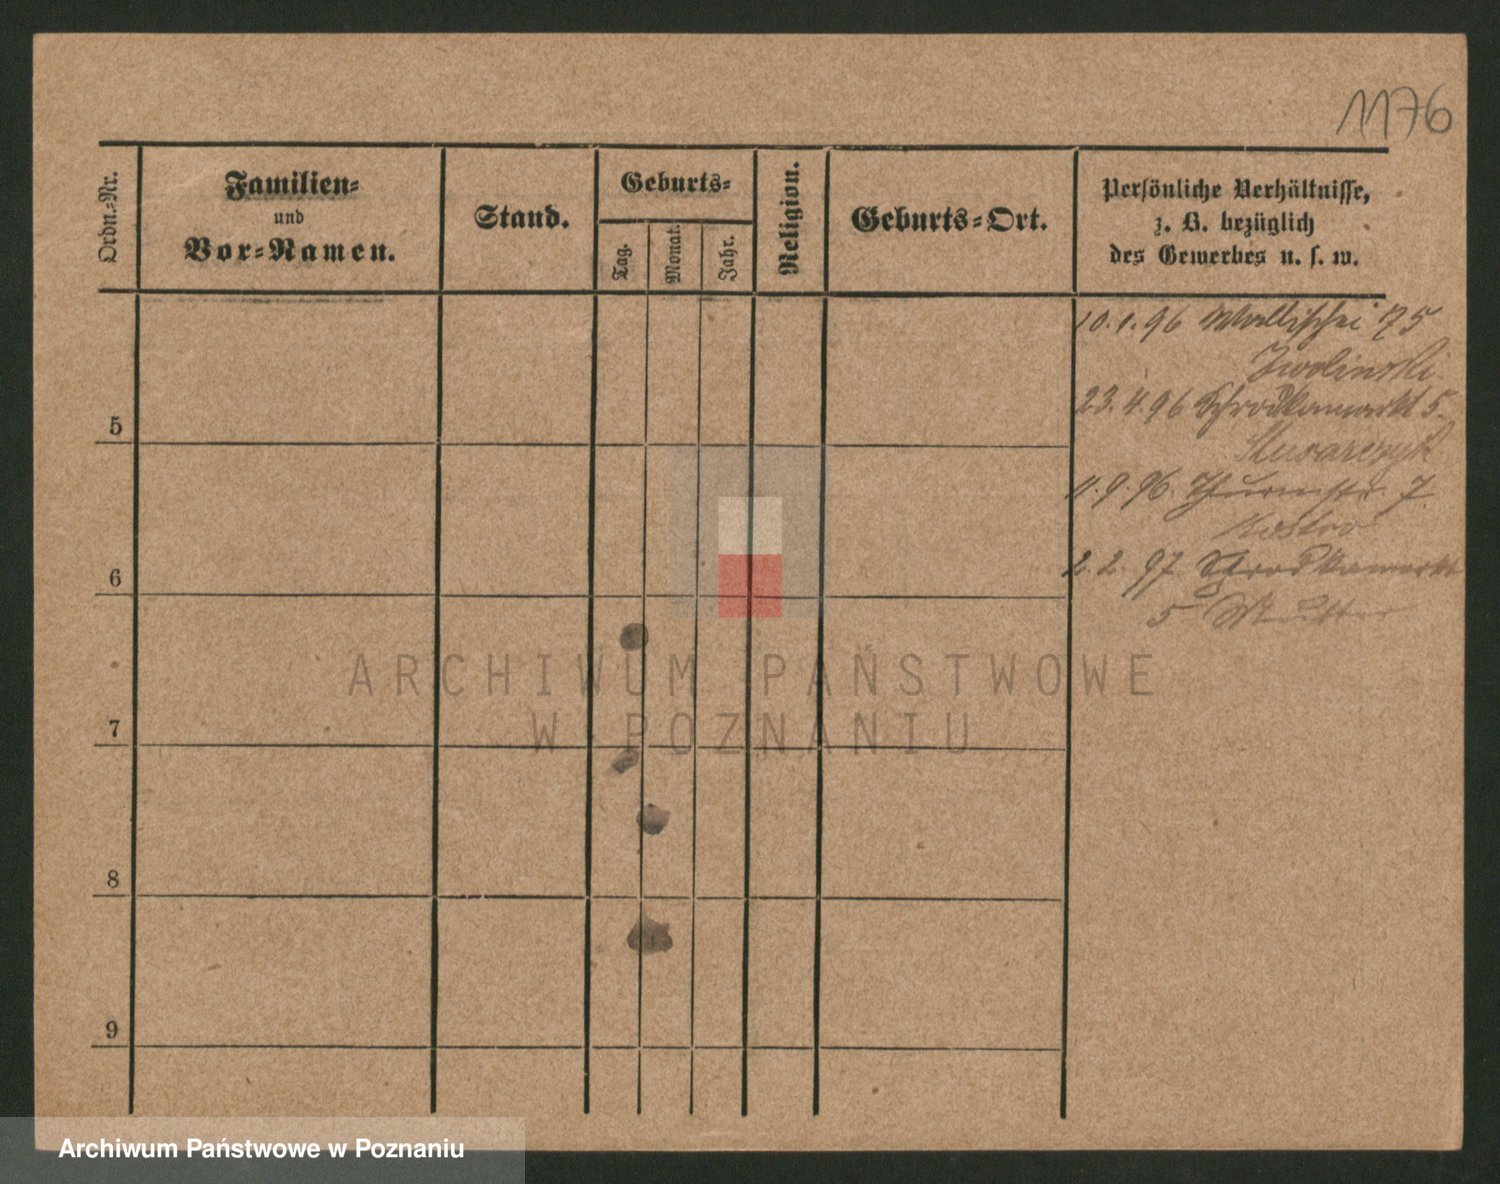 1176
Ordn.-Nr.
Familien-
und
Vor-Namen.
Stand.
Geburts-
Tag.
Monat.
Jahr.
Religion.
Geburts-Ort.
Persönliche Verhältnisse,
z. B. bezüglich
des Gewerbes u. s. w.
10.1.96 Wallischei 75
Zwolinski
23.4.96 Schrodkamarkt 5.
5
11.9.96. Thurmstr. 7
2.2.97. Schrodkamarkt
5 Mutter
6
7
8
9
ARCHIWUM PAŃSTWOWE
W POZNANIU
Archiwum Państwowe w Poznaniu